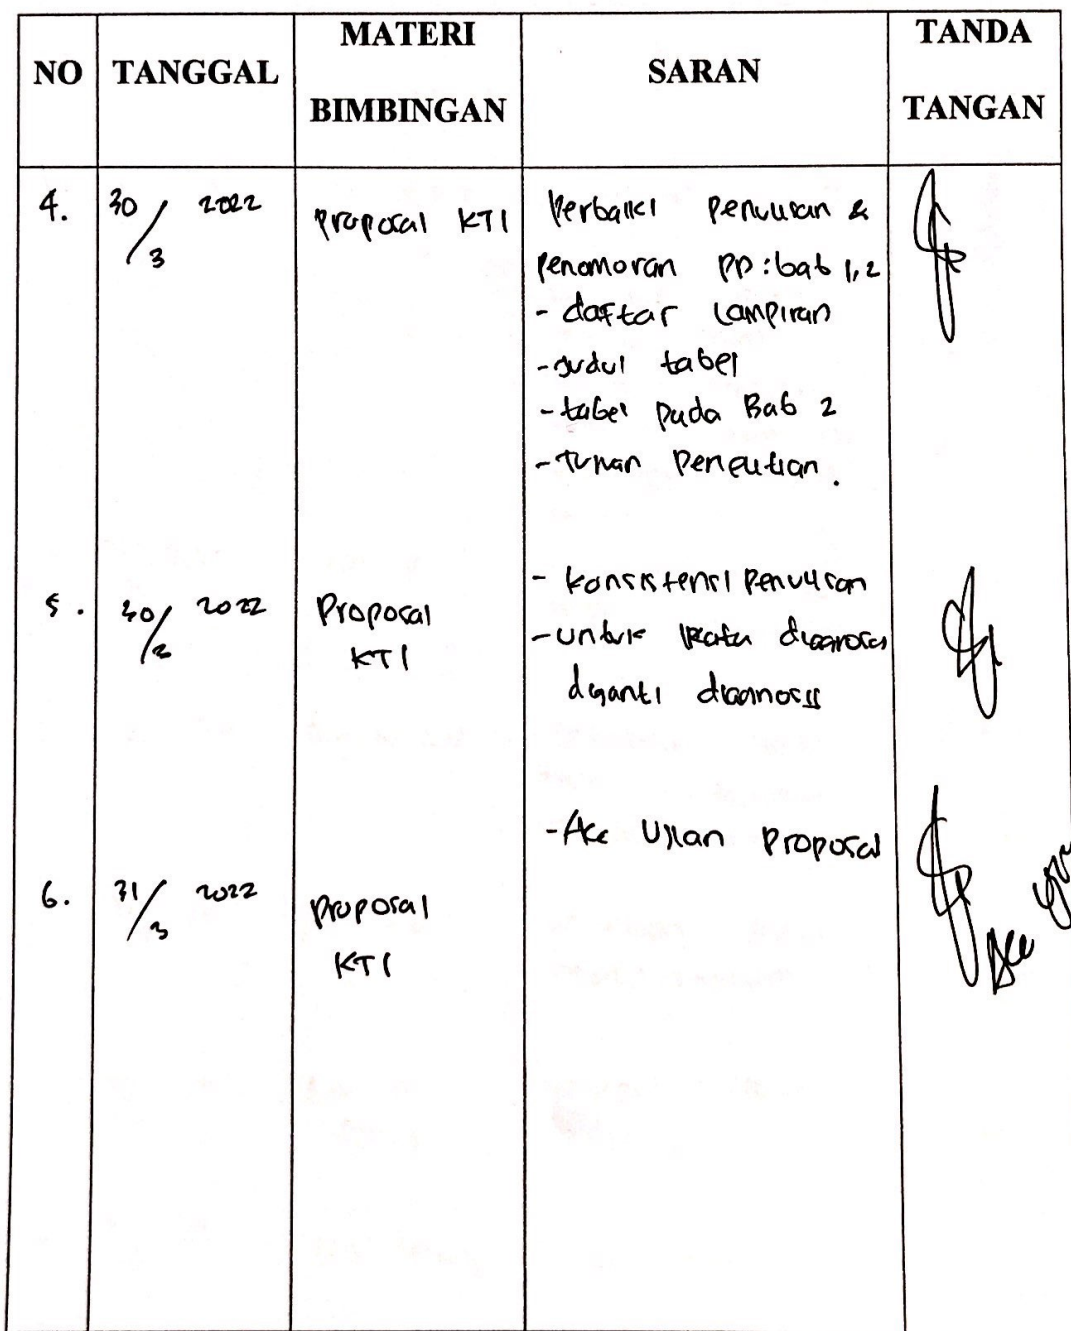 NO TANGGAL MATERI BIMBINGAN SARAN TANDA TANGAN
4. 30/3 2022 proposal KTI Perbaiki penulisan &
penomoran pp : bab 1, 2
- daftar lampiran
- judul tabel
- tabel pada Bab 2
- Tujuan Penelitian.
5. 30/3 2022 Proposal KTI - konsistensi penulisan
- untuk kata diagnosa
diganti diagnosis
6. 31/3 2022 proposal KTI - Acc Ujian proposal
Acc